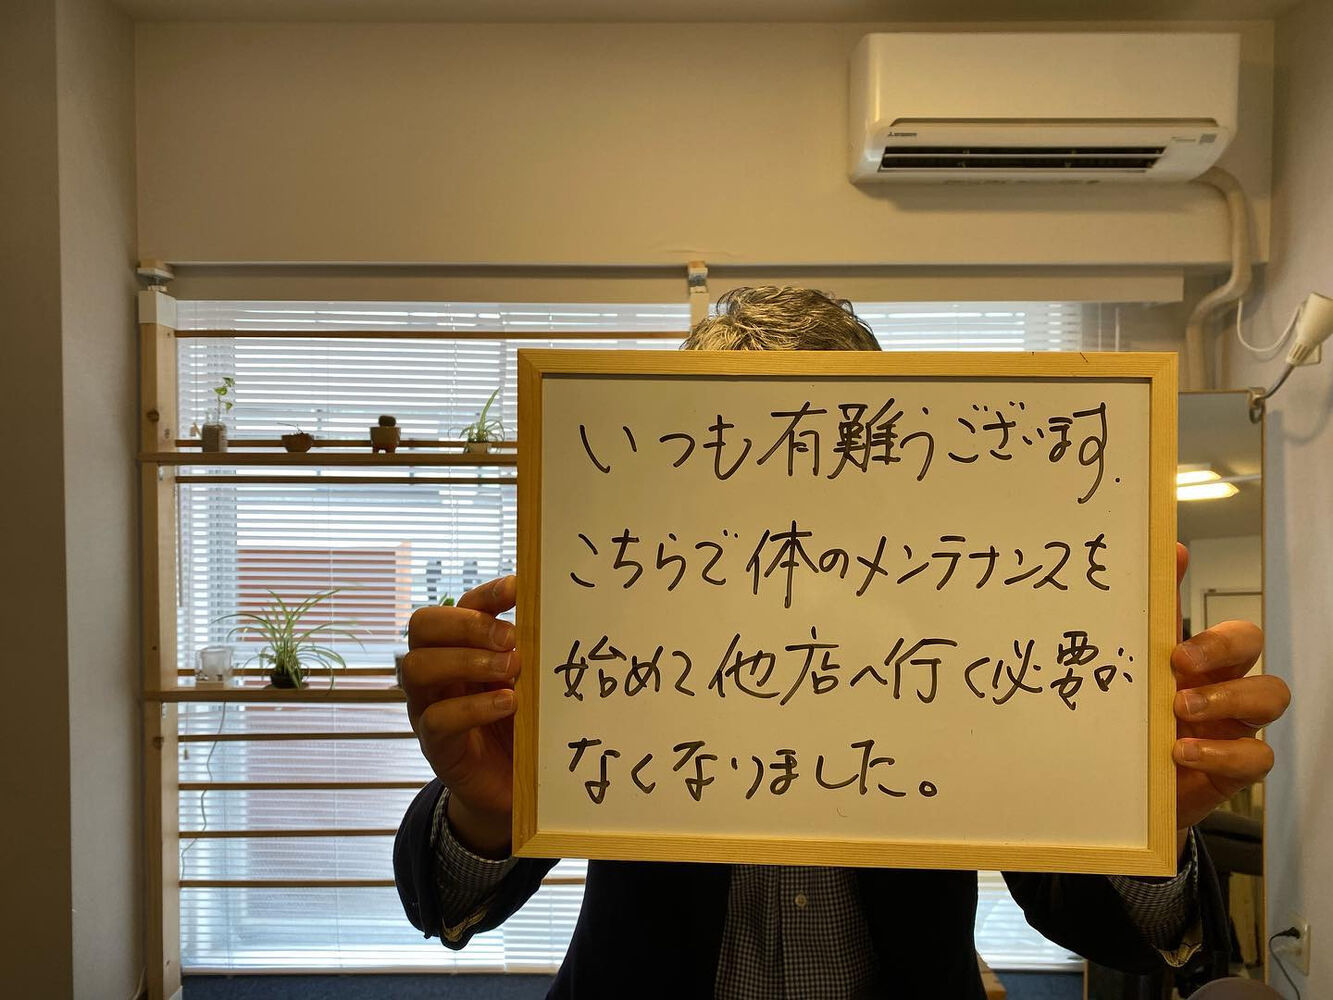 いつも有難うございます.
こちらで体のメンテナンスを
始めて他店へ行く必要が
なくなりました。